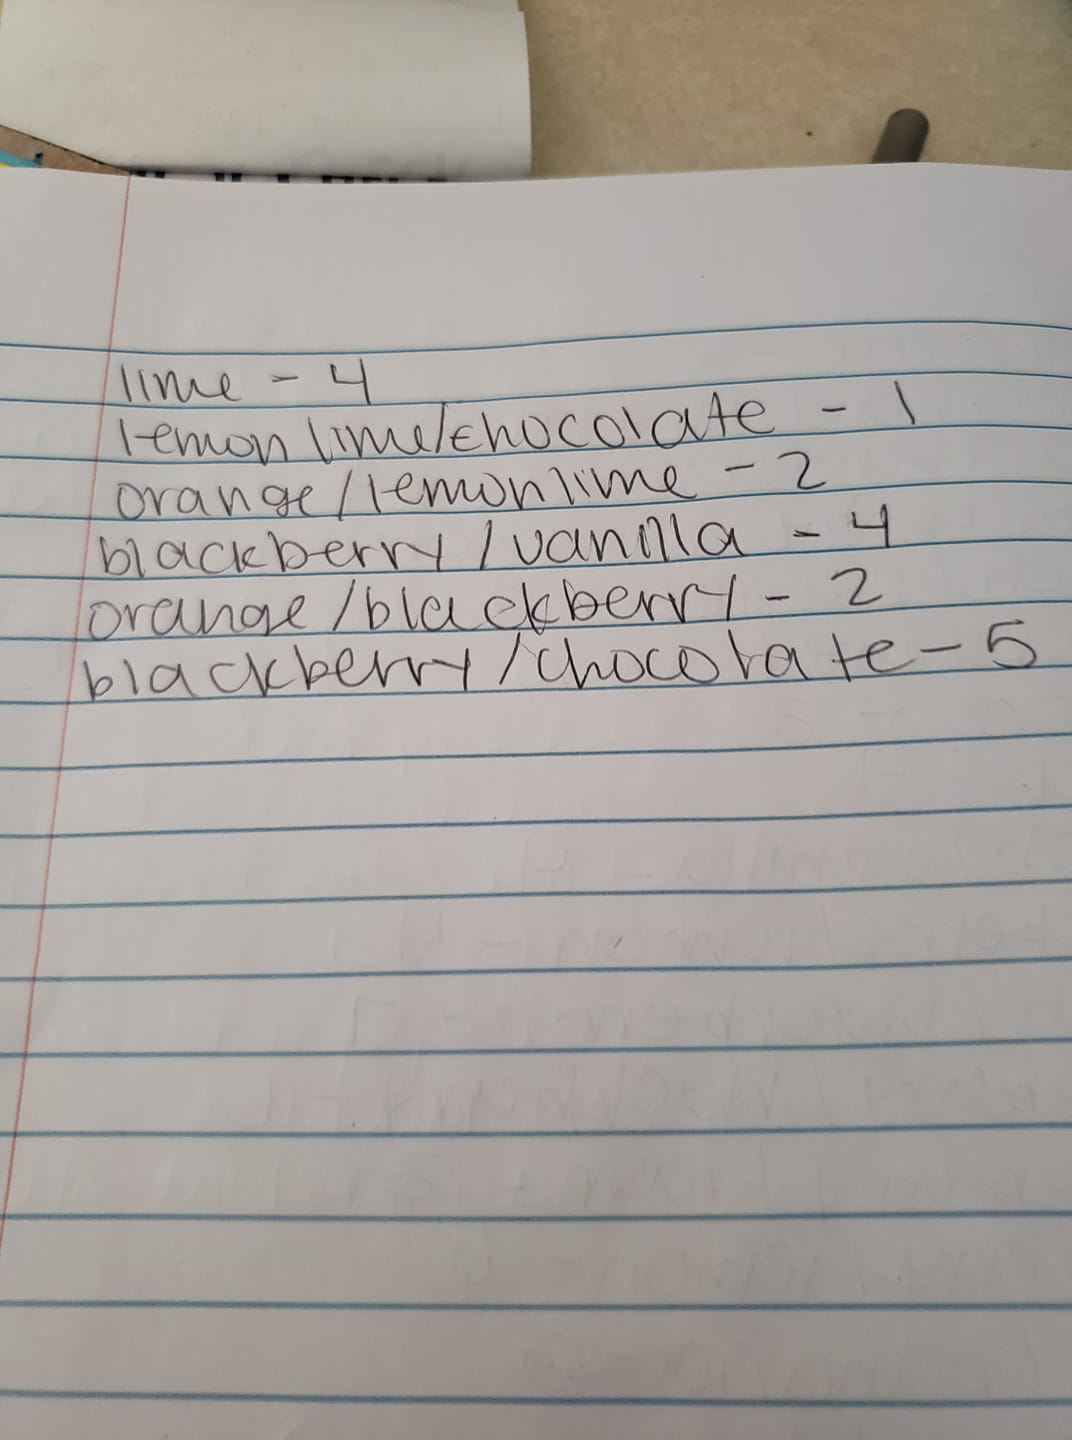 lime - 4
lemon lime/chocolate - 1
orange/lemon lime - 2
blackberry/vanilla - 4
orange/blackberry - 2
blackberry/chocolate - 5